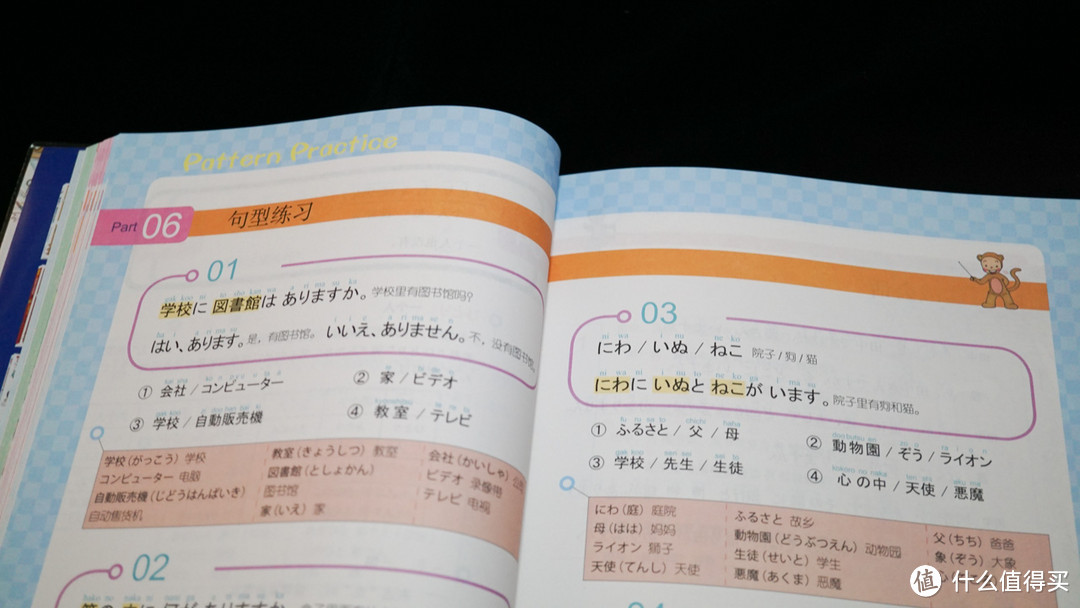 Pattern Practice
Part 06 句型练习
01
学校に 図書館は ありますか。学校里有图书馆吗?
はい、あります。是,有图书馆。 いいえ、ありません。不,没有图书馆。
① 会社 / コンピューター ② 家 / ビデオ
③ 学校 / 自動販売機 ④ 教室 / テレビ
学校(がっこう) 学校 教室(きょうしつ) 教室 会社(かいしゃ)
コンピューター 电脑 図書館(としょかん) ビデオ 录像带
自動販売機(じどうはんばいき) 图书馆 テレビ 电视
自动售货机 家(いえ) 家
02
03
にわ / いぬ / ねこ 院子 / 狗 / 猫
にわに いぬと ねこが います。院子里有狗和猫。
① ふるさと / 父 / 母 ② 動物園 / ぞう / ライオン
③ 学校 / 先生 / 生徒 ④ 心の中 / 天使 / 悪魔
にわ(庭) 庭院 ふるさと 故乡 父(ちち) 爸爸
母(はは) 妈妈 動物園(どうぶつえん) 动物园 象(ぞう) 大象
ライオン 狮子 生徒(せいと) 学生
天使(てんし) 天使 悪魔(あくま) 恶魔
值 什么值得买